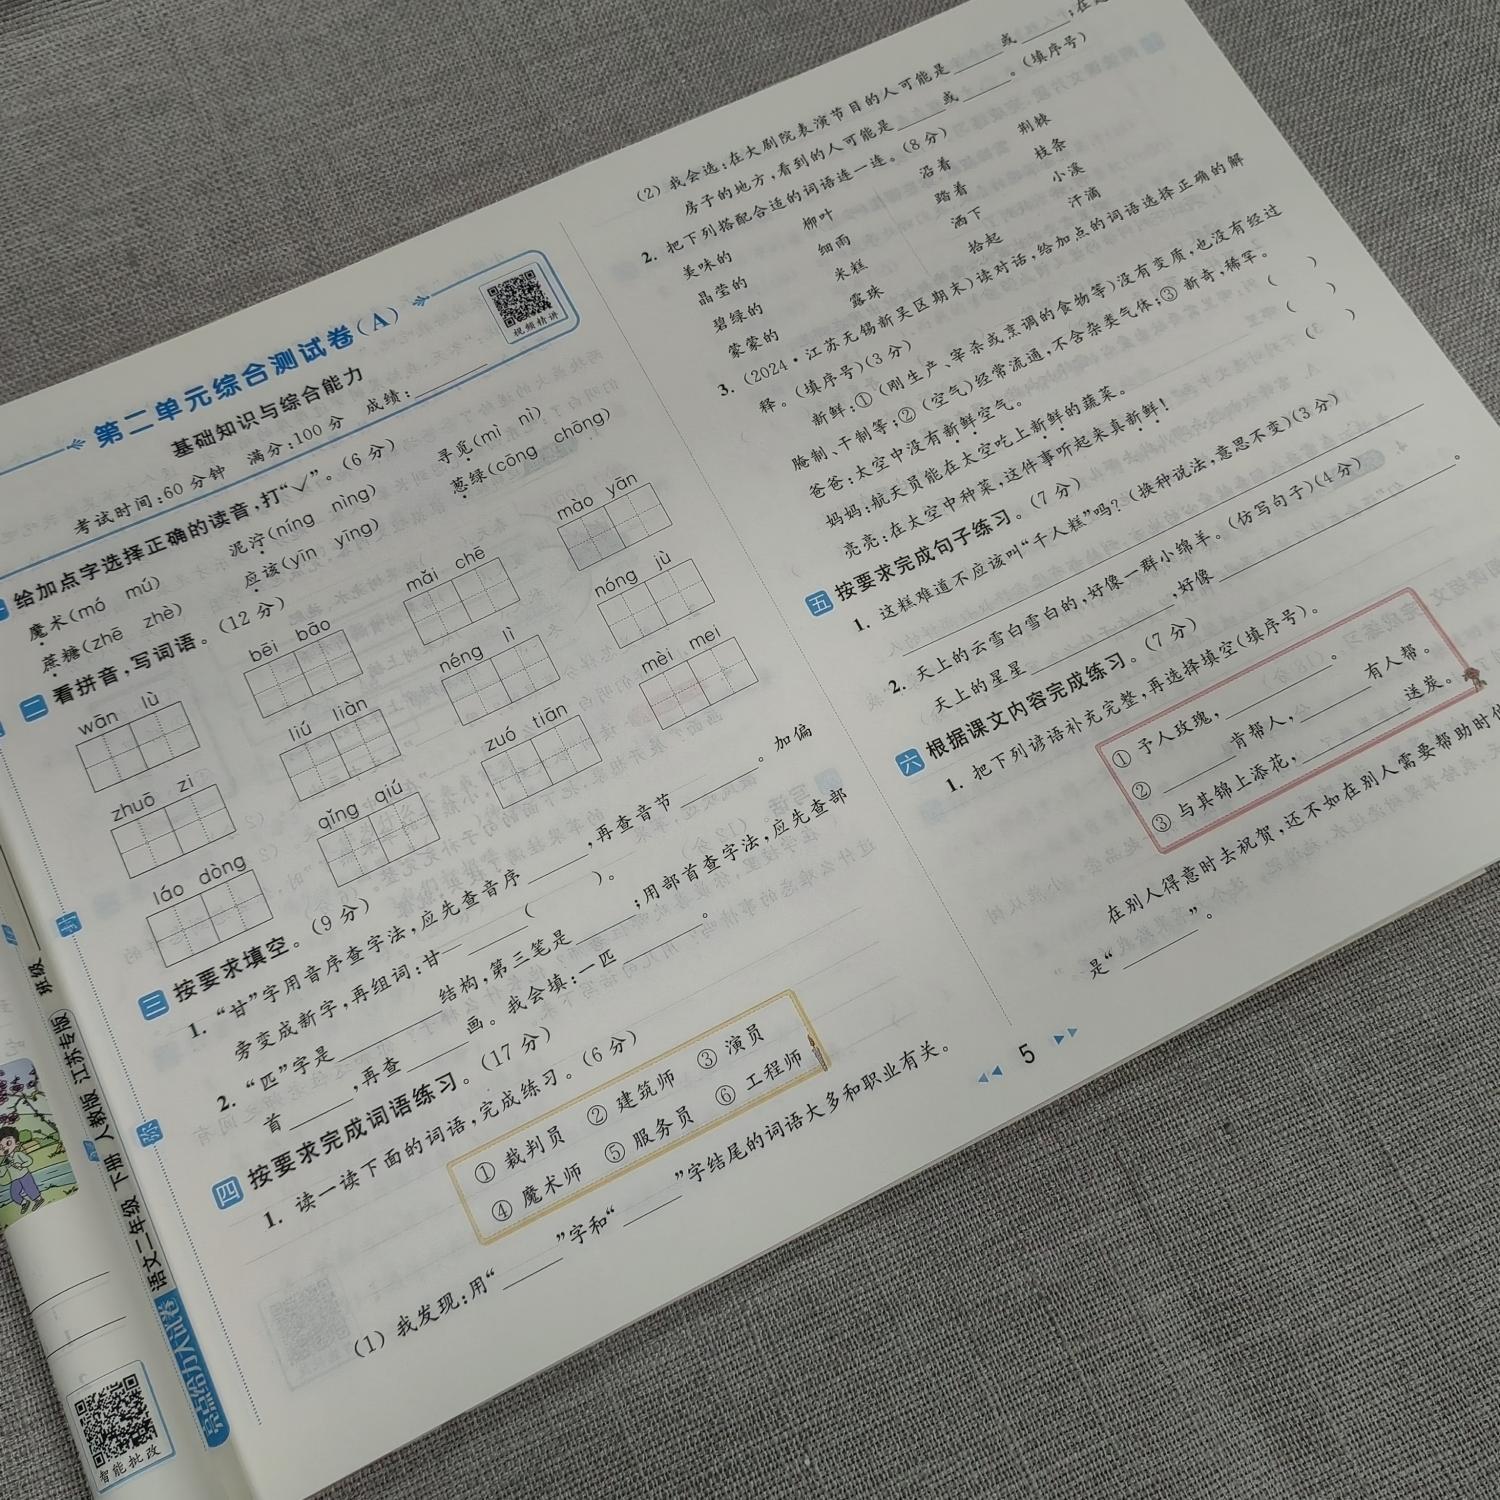 第二单元综合测试卷(A)
视频精讲
基础知识与综合能力
考试时间:60分钟 满分:100分 成绩:
给加点字选择正确的读音,打“✓”。(6分)
魔术(mó mú) 泥泞(níng nìng) 寻觅(mì nì)
蔗糖(zhē zhè) 应该(yīn yīng) 葱绿(cōng chōng)
二 看拼音,写词语。(12分)
wān lù bēi bāo mǎi chē mào yān
zhuō zi liú liàn néng lì nóng jù
láo dòng qīng qiú zuó tiān mèi mei
三 按要求填空。(9分)
1. “甘”字用音序查字法,应先查音序______,再查音节______。加偏
旁变成新字,再组词:甘—______(______)。
2. “匹”字是______结构,第三笔是______;用部首查字法,应先查部
首______,再查______画。我会填:一匹______。
四 按要求完成词语练习。(17分)
1. 读一读下面的词语,完成练习。(6分)
① 裁判员 ② 建筑师 ③ 演员
④ 魔术师 ⑤ 服务员 ⑥ 工程师
(1) 我发现:用“______”字和“______”字结尾的词语大多和职业有关。
(2) 我会选:在大剧院表演节目的人可能是______或______;在
房子的地方,看到的人可能是______或______。(填序号)
2. 把下列搭配合适的词语连一连。(8分)
美味的 柳叶 沿着 荆棘
晶莹的 细雨 踏着 枝条
碧绿的 米糕 洒下 小溪
蒙蒙的 露珠 拾起 汗滴
3. (2024·江苏无锡新吴区期末)读对话,给加点的词语选择正确的解
释。(填序号)(3分)
新鲜:①(刚生产、宰杀或烹调的食物等)没有变质,也没有经过
腌制、干制等;②(空气)经常流通,不含杂类气体;③ 新奇,稀罕。
爸爸:太空中没有新鲜空气。 ( )
妈妈:航天员能在太空吃上新鲜的蔬菜。 ( )
亮亮:在太空中种菜,这件事听起来真新鲜! ( )
五 按要求完成句子练习。(7分)
1. 这糕难道不应该叫“千人糕”吗?(换种说法,意思不变)(3分)
2. 天上的云雪白雪白的,好像一群小绵羊。(仿写句子)(4分)
天上的星星______,好像______。
六 根据课文内容完成练习。(7分)
1. 把下列谚语补充完整,再选择填空(填序号)。
① 予人玫瑰,______。
② ______肯帮人,______有人帮。
③ 与其锦上添花,______送炭。
在别人得意时去祝贺,还不如在别人需要帮助时
是“______”。
5
班级
语文二年级 下册 人教版 江苏专版
智能批改